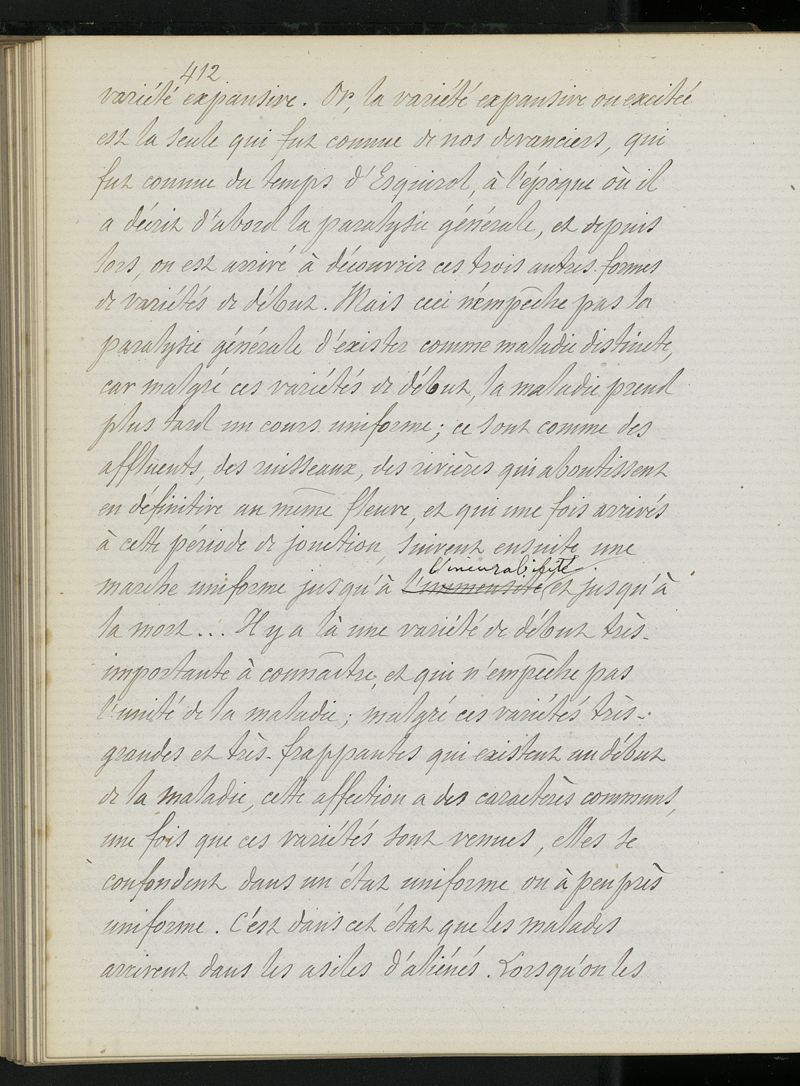 412
variété expansive. Or, la variété expansive ou excitée
est la seule qui fut connue de nos devanciers, qui
fut connue du temps d'Esquirol, à l'époque où il
a décrit d'abord la paralysie générale, et depuis
lors, on est arrivé à découvrir ces trois autres formes
de variétés de début. Mais ceci n'empêche pas la
paralysie générale d'exister comme maladie distincte,
car malgré ces variétés de début, la maladie prend
plus tard un cours uniforme ; ce sont comme des
affluents, des ruisseaux, des rivières qui aboutissent
en définitive au même fleuve, et qui une fois arrivés
à cette période de jonction, suivent ensuite une
l'incurabilité
marche uniforme jusqu'à l'immensité et jusqu'à
la mort ... Il y a là une variété de début très-
importante à connaître, et qui n'empêche pas
l'unité de la maladie ; malgré ces variétés très-
grandes et très-frappantes qui existent au début
de la maladie, cette affection a des caractères communs,
une fois que ces variétés sont venues, elles se
confondent dans un état uniforme ou à peu près
uniforme. C'est dans cet état que les malades
arrivent dans les asiles d'aliénés. Lorsqu'on les